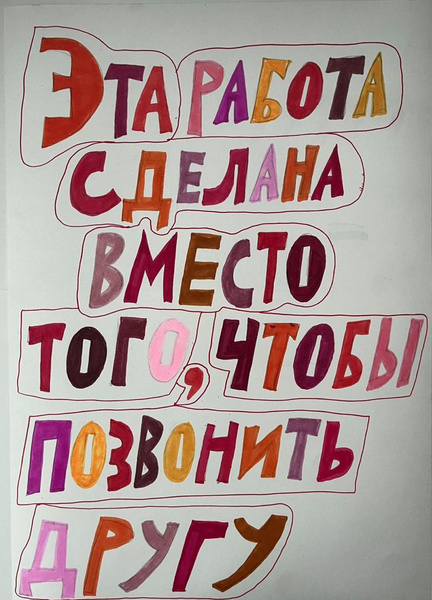 ЭТА РАБОТА
СДЕЛАНА
ВМЕСТО
ТОГО, ЧТОБЫ
ПОЗВОНИТЬ
ДРУГУ